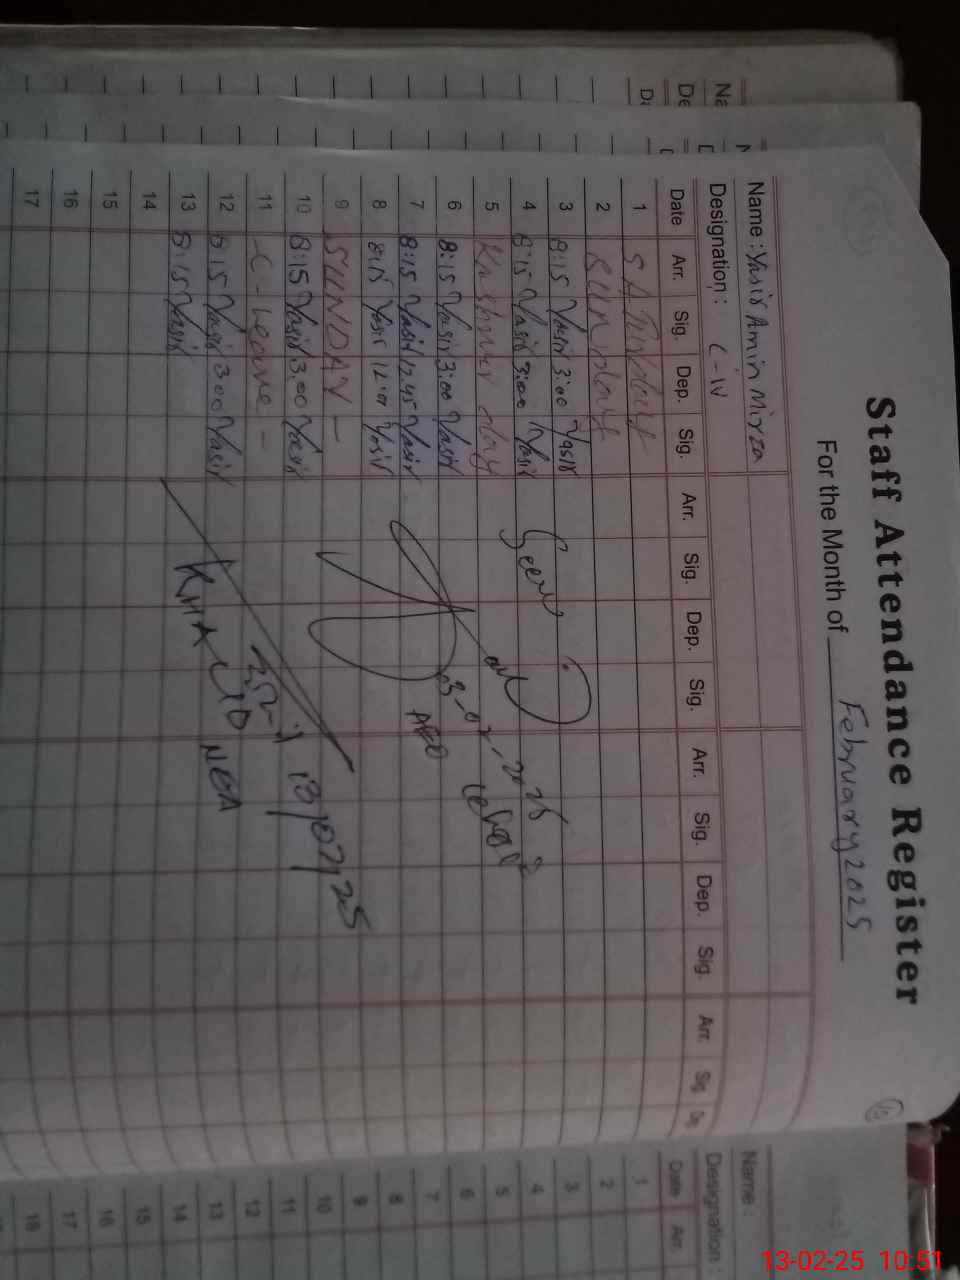 Staff Attendance Register
For the Month of February 2025
Name : Yasir Amin Mirza
Designation : C-IV
Date Arr. Sig. Dep. Sig. Arr. Sig. Dep. Sig. Arr. Sig. Dep. Sig. Arr. Sig.
1
2 SUNDAY
3 8:15 Yasir 3:00 Yasir
4 8:15 Yasir 3:00 Yasir
5 Kashmir day
6 8:15 Yasir 3:00 Yasir
7 8:15 Yasir 12:45 Yasir
8 8:15 Yasir Yasir
9 SUNDAY -
10 8:15 Yasir 3:00 Yasir
11 - C - Leave -
12 8:15 Yasir 3:00 Yasir
13 8:15 Yasir
14
15
16
17
Seen
03-02-2025
AEO
13/02/25
Name :
Designation :
Date Arr.
1
2
3
4
5
6
7
8
9
10
11
12
13
14
15
16
17
18
13-02-25 10:51